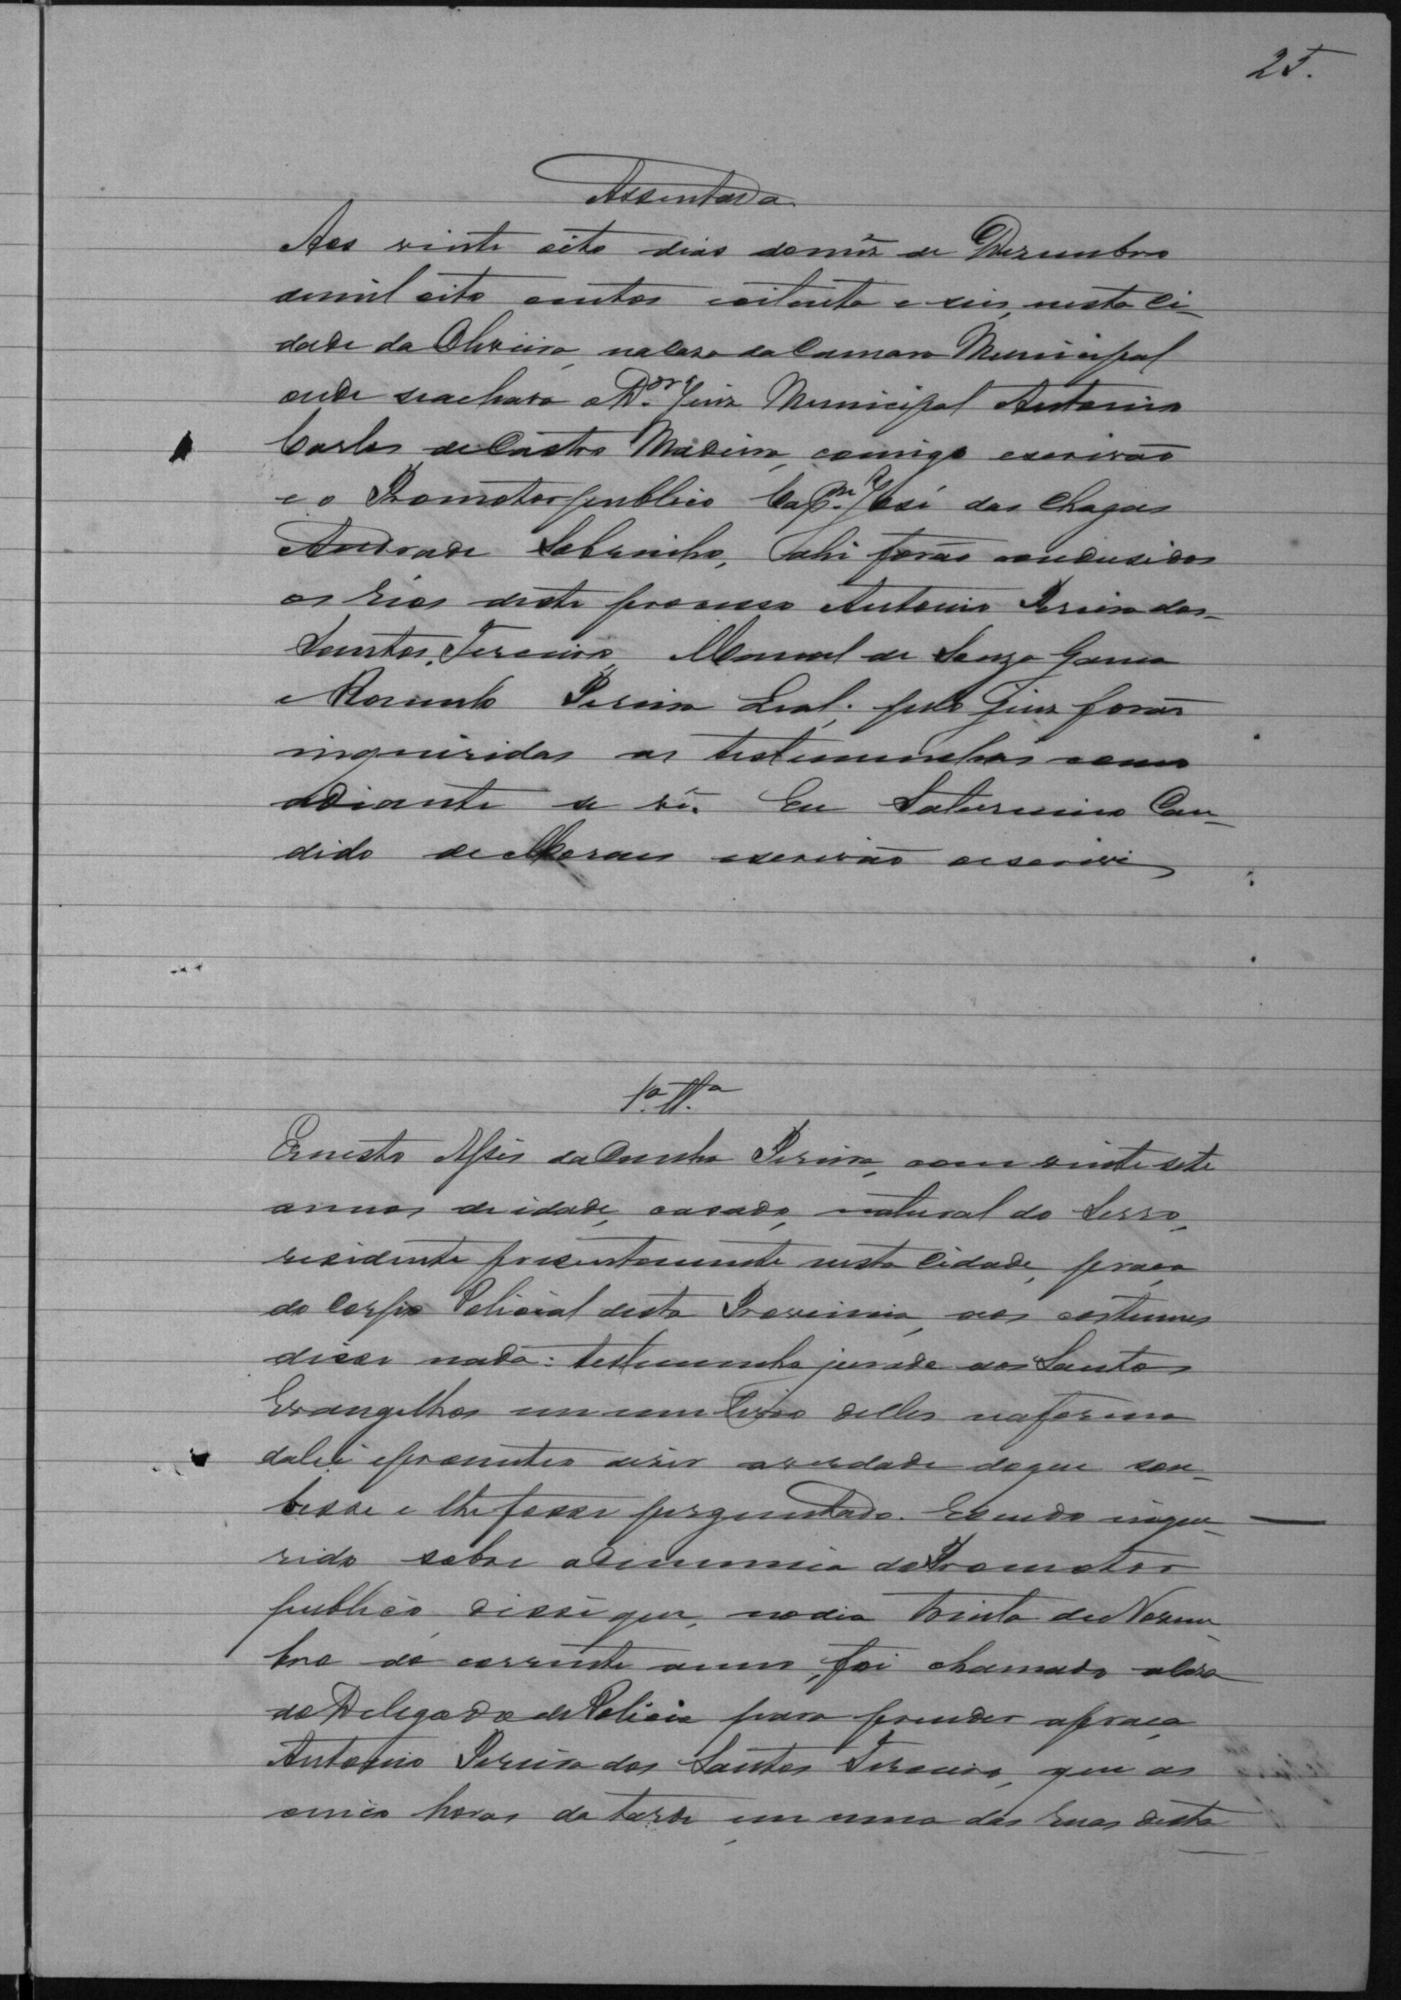 25.
Assentada
Aos vinte oito dias do mêz de Dezembro
de mil oito centos e oitenta e seis, nesta Ci-
dade da Oliveira, na Casa da Camara Municipal
onde se achava o Dor. Juiz Municipal Antonio
Carlos de Castro Madeira, comigo escrivão
e o Promotor publico Capm. José das Chagas
Andrade Sobrinho, ahi forão condusidos
os réos deste processo Antonio Pereira dos
Santos Terceiro, Manoel de Souza Gama
e Pereira Leal; pelo Juiz forão
inquiridas as testemunhas como
adiante se vê. Eu Saturnino Can-
dido de Moraes escrivão o escrivi
1a. Ta.
Ernesto Assis da Cunha Pereira, com vinte sete
annos de idade, casado, natural do Serro,
residente presentemente nesta Cidade, praça
do Corpo Policial desta Provincia, aos costumes
disse nada: testemunha jurada aos Santos
Evangelhos em um Livro delles na forma
da lei e prometteo diser a verdade do que sou-
besse e lhe fosse perguntado. E sendo inque-
rido sobre a denuncia do Promotor
publico, disse que, no dia trinta de Novem-
bro do corrente anno, foi chamado a casa
do Delegado de Policia para prender a praça
Antonio Pereira dos Santos Terceiro, que as
cinco horas da tarde em uma das ruas desta